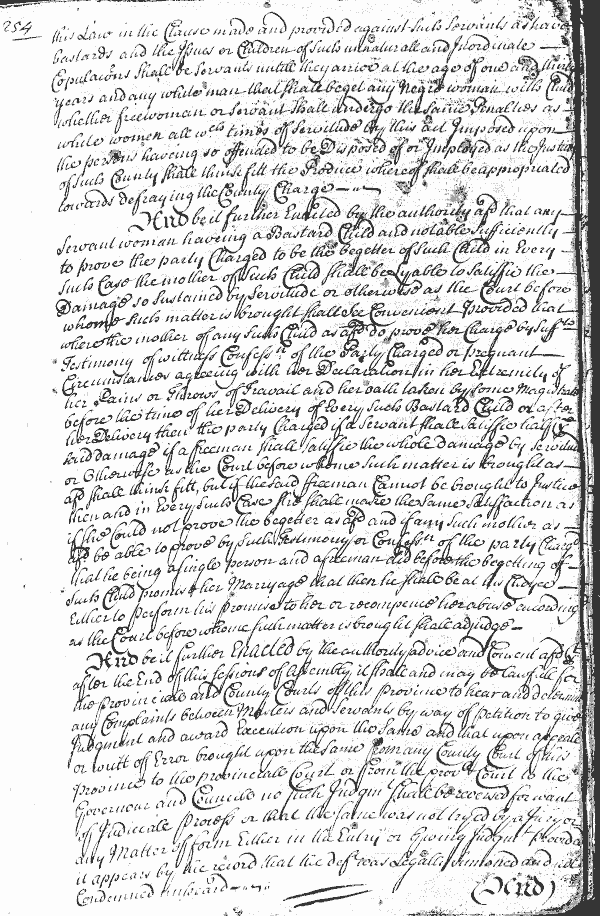 254
this Law in the Clause made and provided against such Servants as have
bastards and the Issues or Children of such unnaturall and Inordinate
Copulacons shall be Servants untill they arrive at the age of one and thirty
years and any white man that shall begett any Negro woman with Child
whether freewoman or Servant shall undergo the same Penalties as
white women all wch times of Servitude by this act Imposed upon
the persons haveing so offended to be Disposed of or Imployed as the Justices
of such County shall thinke fitt the Produce whereof shall be appropriated
towards defraying the County Charge
And be it further Enacted by the authority afd that any
Servant woman haveing a Bastard Child and not able sufficiently
to prove the party Charged to be the begetter of such Child in Every
such Case the mother of such Child shall be Lyable to satisfie the
Damage so sustained by Servitude or otherwise as the Court before
whome such matter is brought shall see Convenient Provided that
where the mother of any such Child as afd do prove her Charge by Suff
Testimony of wittness Confess of the Party Charged or pregnant
Circumstances agreeing with her Declaration in her Extremity of
her Pains or Throws of Travail and her oath taken by some Magistrate
before the time of her Delivery of Every such Bastard Child or after
her Delivery then the party Charged if a Servant shall satisfie half
said damage if a freeman shall satisfie the whole damage by servitude
or Otherwise as the Court before whome such matter is brought as
afd shall thinke fitt, but if the said freeman Cannot be brought to Justice
then and in Every such Case she shall make the same satisfaction as
if she Could not prove the begetter as afd and if any such mother as
afd be able to prove by such Testimony or Confess of the party Charged
that he being a single person and a freeman did before the begetting of
such Child promise her Marryage that then he shall be at his Choyce
Either to perform his promise to her or recompence her abuse according
as the Court before whome such matter is brought shall adjudge
And be it further Enacted by the authority advice and Consent afd
after the End of this sessions of Assembly it shall and may be lawfull for
the provinciall and County Courts of this Province to hear and determine
any Complaints between Masters and Servants by way of Petition to give
Judgment and award Execution upon the same and that upon appeale
or writt of Error brought upon the same from any County Court of this
Province to the provinciall Court or from the prov Court to the
Governour and Councill no such Judgmt shall be reversed for want
of Judiciale Process or that the same was not tryed by a Jury or
any Matter of form Either in the Entry or Giving Judgmt Provided
it appears by the record that the deft was Legally summoned and not
Condemned unheard
And